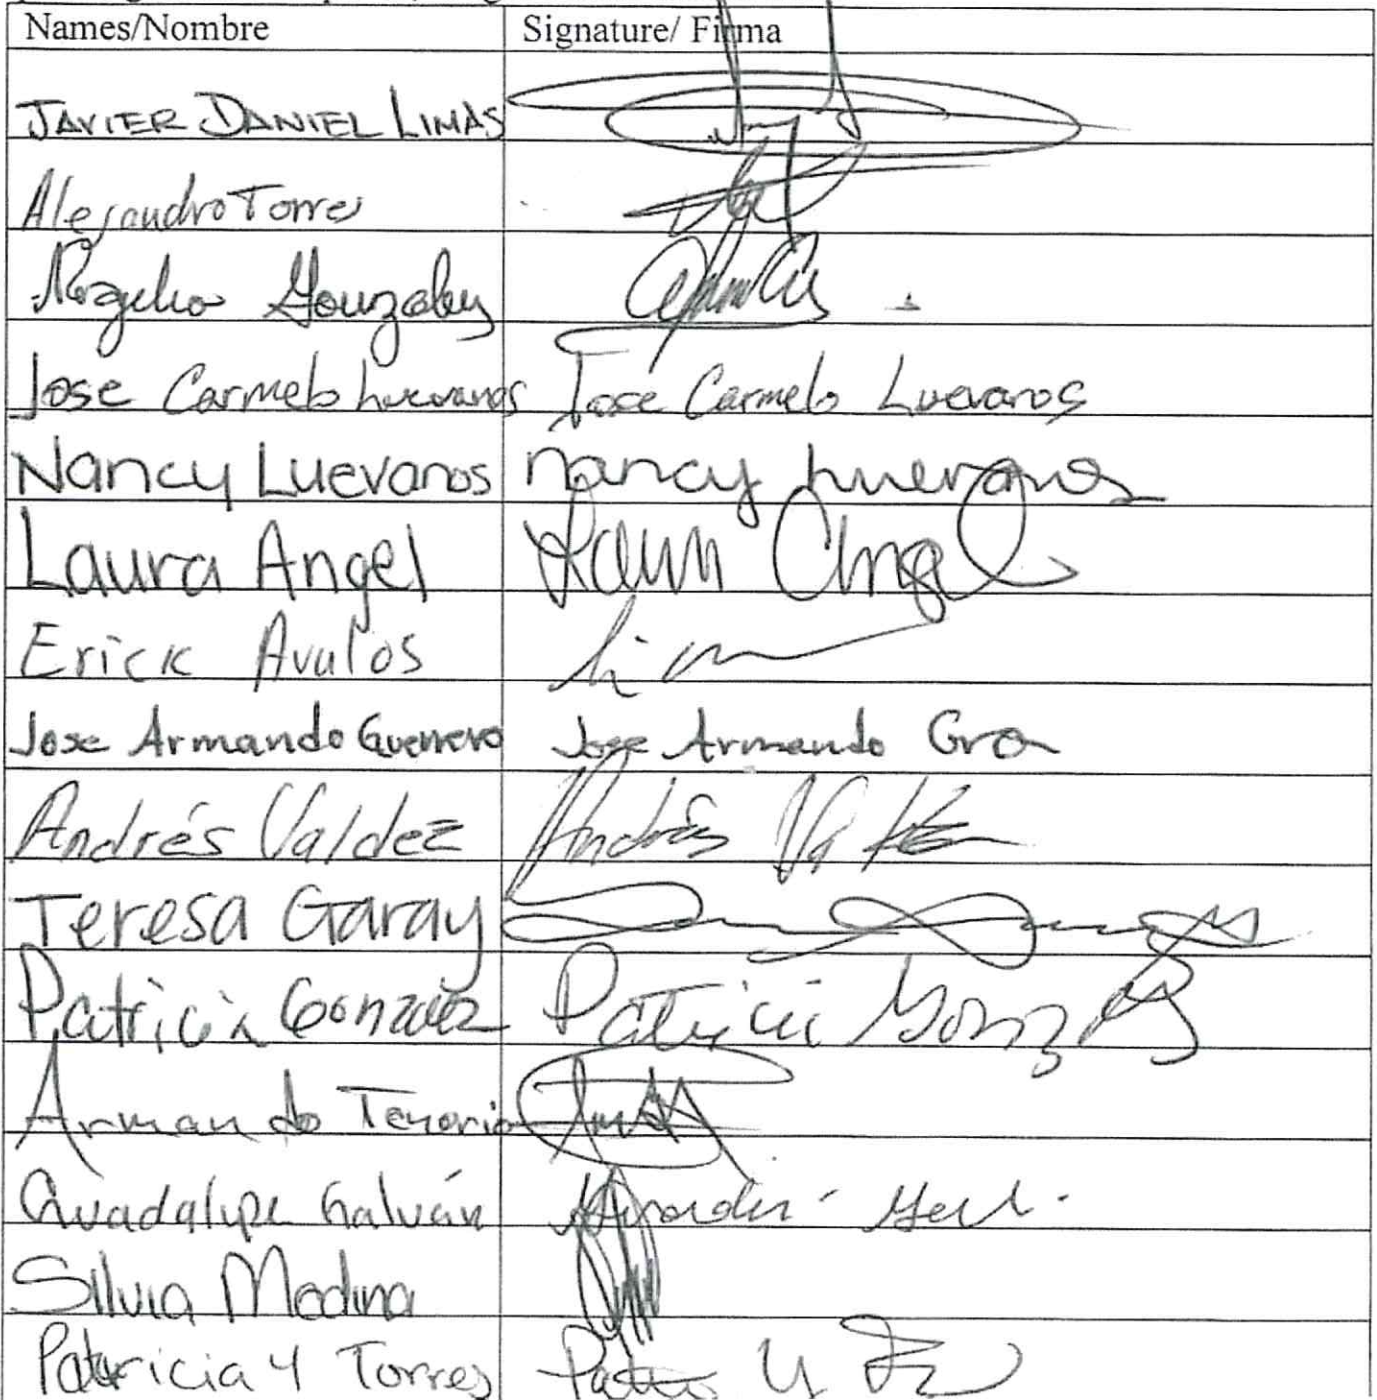 Names/Nombre Signature/ Firma
JAVIER DANIEL LIMAS
Alejandro Torres
Rogelio Gonzalez
Jose Carmelo Luevanos Jose Carmelo Luevanos
Nancy Luevanos Nancy Luevanos
Laura Angel Laura Angel
Erick Avalos
Jose Armando Guerrero Jose Armando Gro
Andrés Valdez Andrés
Teresa Garay
Patricia Gonzalez Patricia Gonzalez
Armando Tenorio
Guadalupe Galván
Silvia Medina
Patricia Y Torres